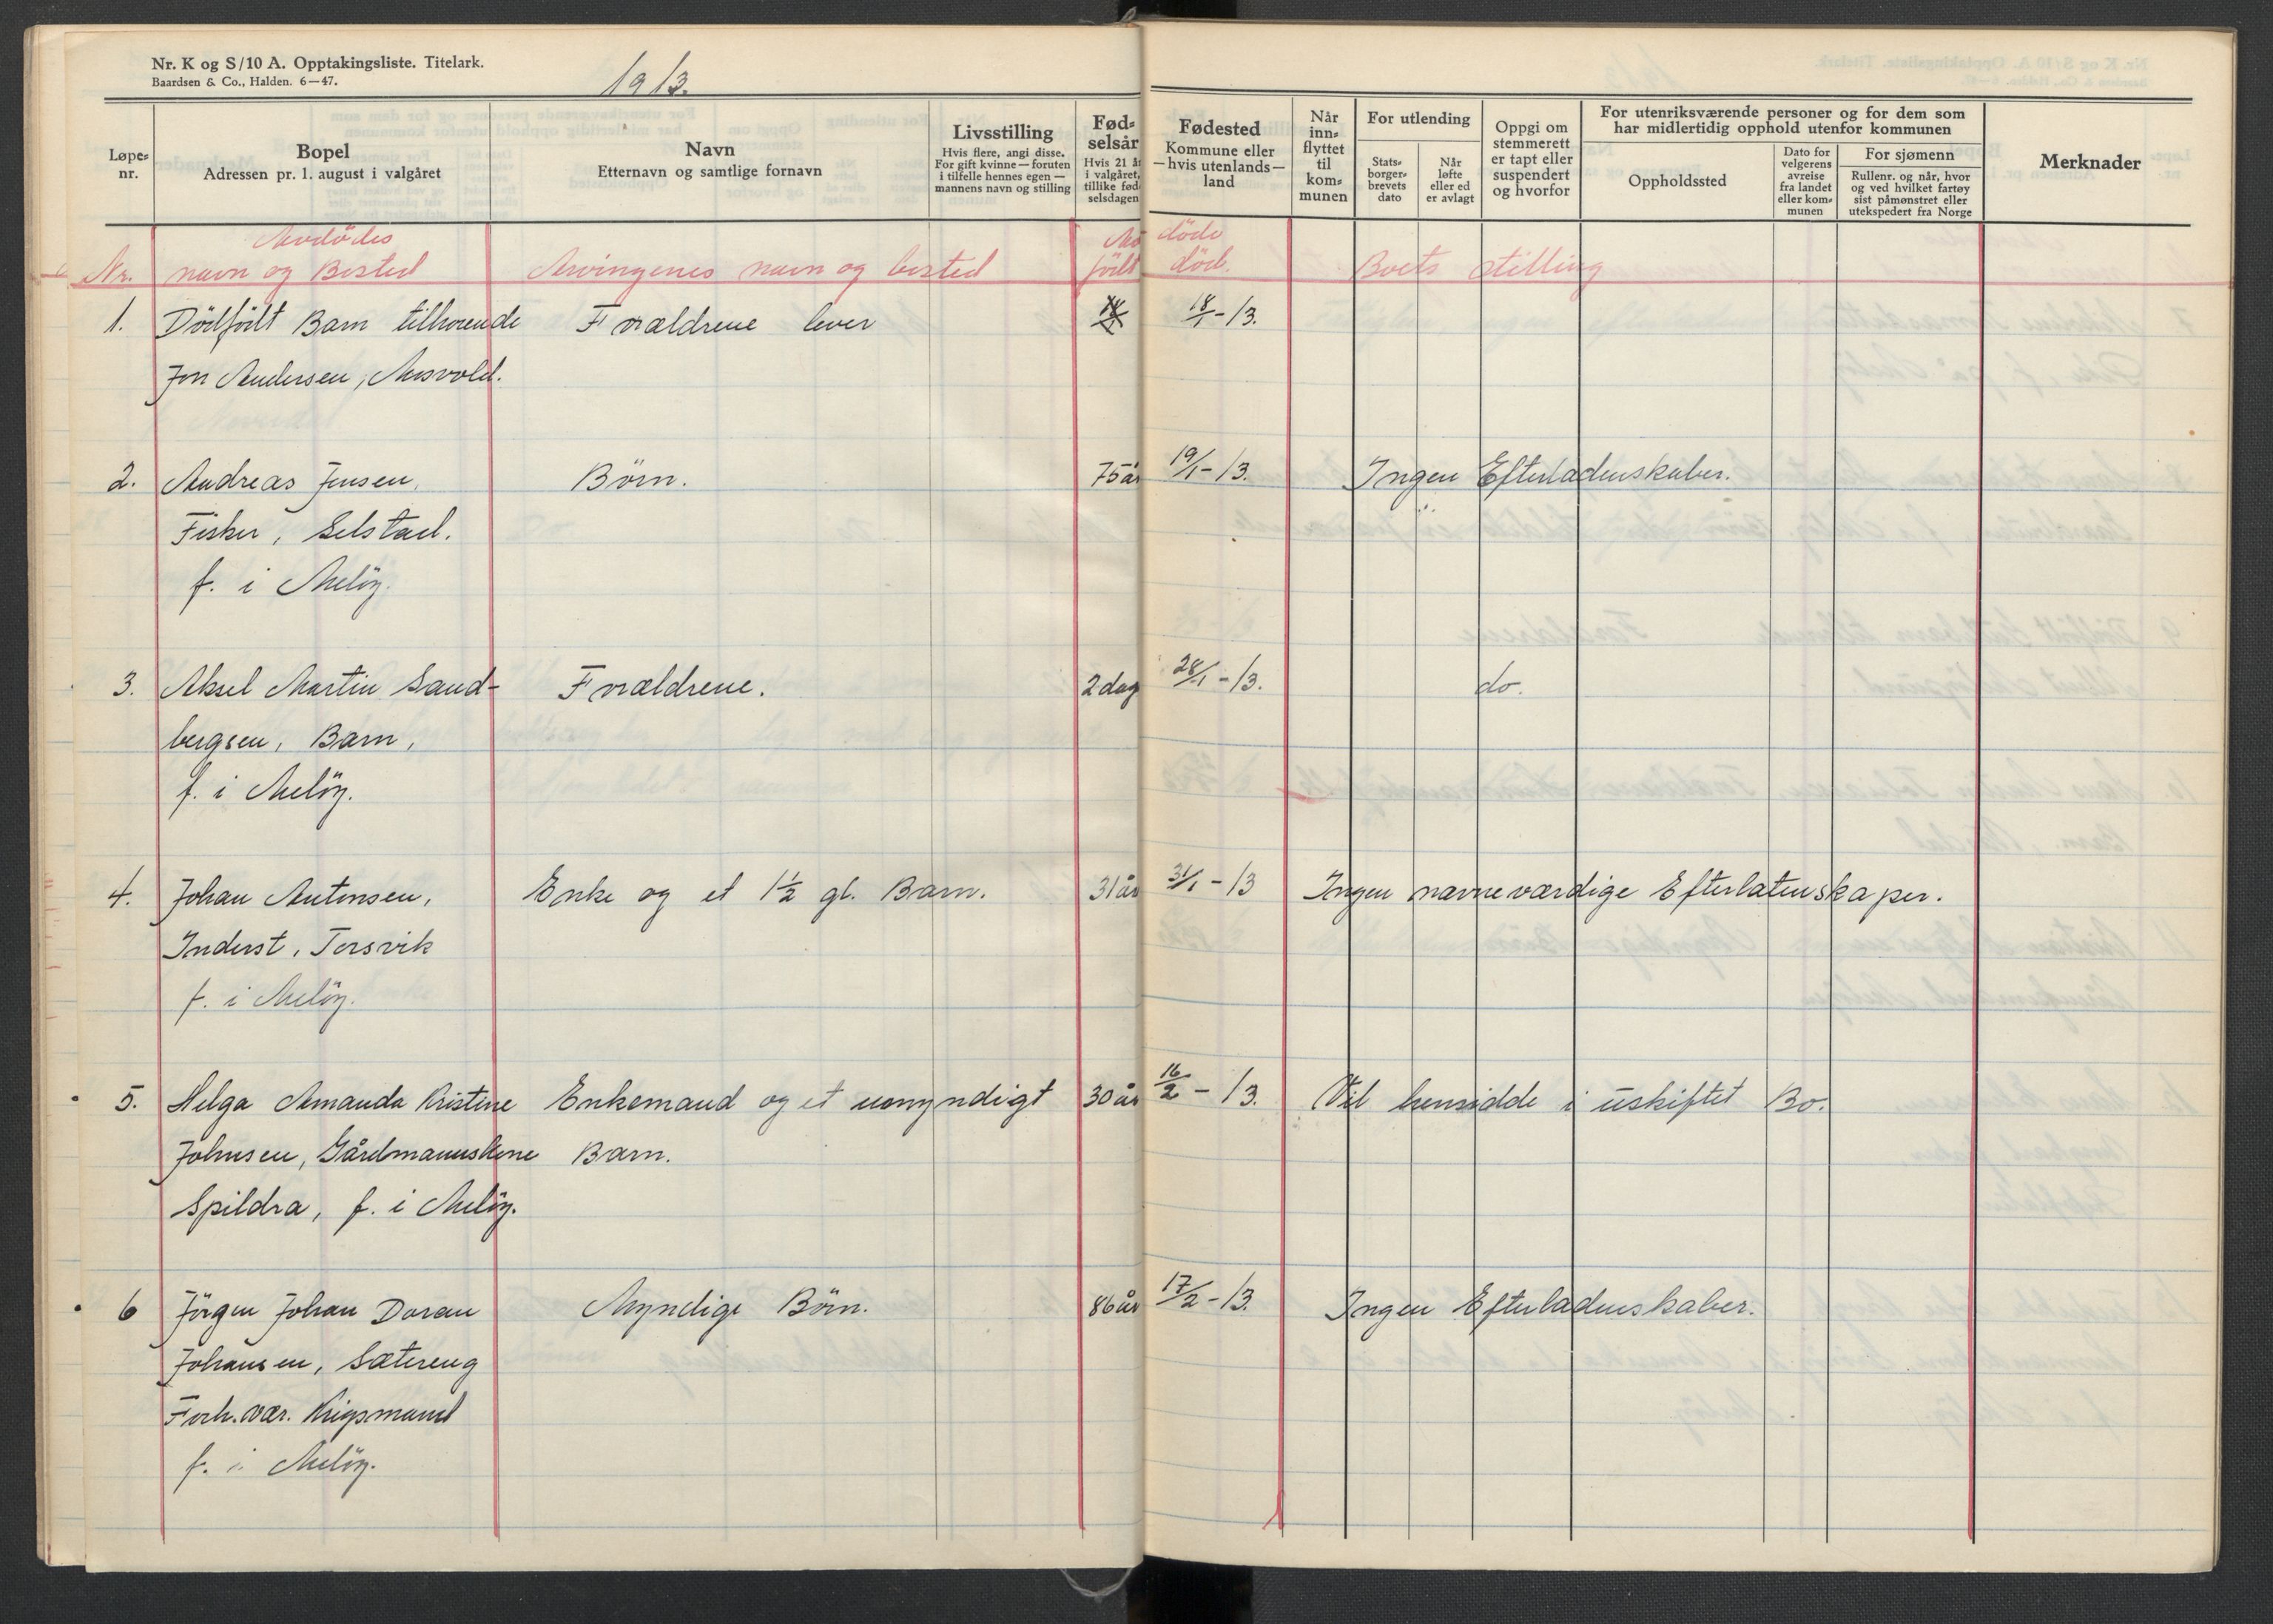 Nr. K og S/10 A. Opptakingsliste. Titelark.
Baardsen & Co., Halden. 6—47.
1913.
Løpe-
nr.
Bopel
Adressen pr. 1. august i valgåret
Navn
Etternavn og samtlige fornavn
Livsstilling
Hvis flere, angi disse.
For gift kvinne — foruten
i tilfelle hennes egen —
mannens navn og stilling
Fød-
selsår
Hvis 21 år
i valgåret,
tillike fød
selsdagen
Fødested
Kommune eller
—hvis utenlands—
land
Når
inn-
flyttet
til
kom-
munen
For utlending
Stats-
borger-
brevets
dato
Når
løfte
eller ed
er avlagt
Oppgi om
stemmerett
er tapt eller
suspendert
og hvorfor
For utenriksværende personer og for dem som
har midlertidig opphold utenfor kommunen
Oppholdssted
Dato for
velgerens
avreise
fra landet
eller kom-
munen
For sjømenn
Rullenr. og når, hvor
og ved hvilket fartøy
sist påmønstret eller
utekspedert fra Norge
Merknader
Avdödes döde
Nr. navn og Bosted Arvingenes navn og bosted født død. Boets stilling
1. Dödfödt Barn tilhørende Forældrene lever 18/1-13.
Jon Andersen,
2. Andreas Jensen, Börn. 75 år 19/1-13. Ingen Efterladenskaber.
Fisker, Selstad.
f. i Melöy.
3. Aksel Martin Sand- Forældrene. 2 dag 28/1-13. do.
bergsen, Barn,
f. i Melöy.
4. Johan Antonsen, Enke og et 1½ gl. Barn. 31 år 31/1-13 Ingen nævneværdige Efterlatenskaper.
Inderst, Torsvik
f. i Melöy.
5. Helga Amanda Kristine Enkemand og et umyndigt 30 år 16/2-13. Vil hensidde i uskiftet Bo.
Johnsen, Gårdmannskone Barn.
Spildra, f. i Melöy.
6 Jörgen Johan Doran Myndige Börn. 86 år 17/2-13. Ingen Efterladenskaber.
Johansen, Sætereng
Forh. vær. Krigsmand
f. i Melöy.